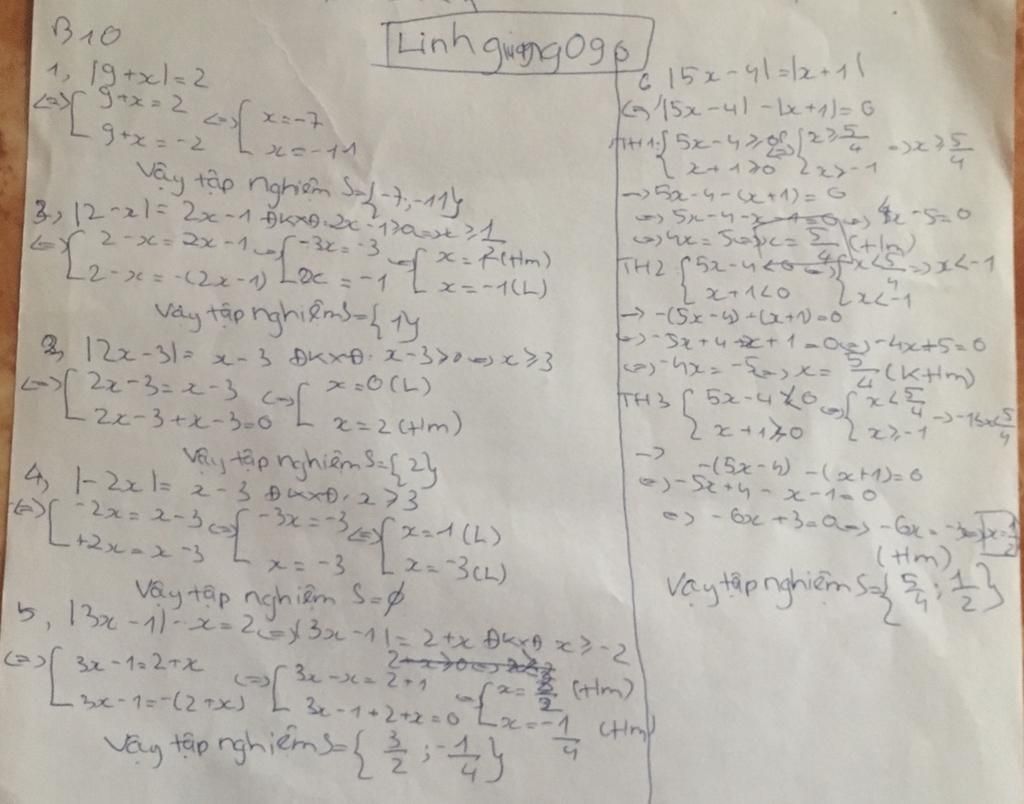 B10
Linhgiương09p
1, |9+x|=2
<=> [ 9+x=2 <=> [ x=-7
9+x=-2 x=-11
Vậy tập nghiệm S={-7;-11}
3, |2-x|= 2x-1 ĐKXĐ. 2x-1≥0 => x≥ 1
<=> [ 2-x=2x-1 <=> [ -3x=-3 <=> [ x=1 (t/m)
2-x=-(2x-1) x=-1 x=-1(L)
Vậy tập nghiệm S={1}
2, |2x-3|= x-3 ĐKXĐ. x-3≥0 <=> x≥3
<=> [ 2x-3=x-3 <=> [ x=0(L)
2x-3+x-3=0 x=2(t/m)
Vậy tập nghiệm S={2}
4, |-2x|= x-3 ĐKXĐ. x≥3
<=> [ -2x=x-3 <=> [ -3x=-3 <=> [ x=1(L)
+2x=x-3 x=-3 x=-3(L)
Vậy tập nghiệm S=∅
5, |3x-1|-x=2 <=> |3x-1|=2+x ĐKXĐ x≥-2
<=> [ 3x-1=2+x <=> [ 3x-x=2+1 <=> [ x=3/2 (t/m)
3x-1=-(2+x) 3x-1+2+x=0 x=-1/4 (t/m)
Vậy tập nghiệm S={3/2;-1/4}
6 |5x-4|=|x+1|
<=> |5x-4|-|x+1|=0
TH1: { 5x-4≥0 <=> { x≥5/4 => x≥5/4
x+1≥0 x≥-1
-> 5x-4-(x+1)=0
<=> 5x-4-x-1=0 <=> 4x-5=0
<=> 4x=5 <=> x=5/4 (t/m)
TH2 { 5x-4<0 <=> { x<5/4 => x<-1
x+1<0 x<-1
-> -(5x-4)+(x+1)=0
<=> -5x+4+x+1=0 <=> -4x+5=0
<=> -4x=-5 <=> x=5/4 (Kt/m)
TH3 { 5x-4<0 <=> { x<5/4 -> -1≤x<5/4
x+1≥0 x≥-1
-> -(5x-4)-(x+1)=0
<=> -5x+4-x-1=0
<=> -6x+3=0 <=> -6x=-3 <=> x=1/2
(t/m)
Vậy tập nghiệm S={5/4;1/2}